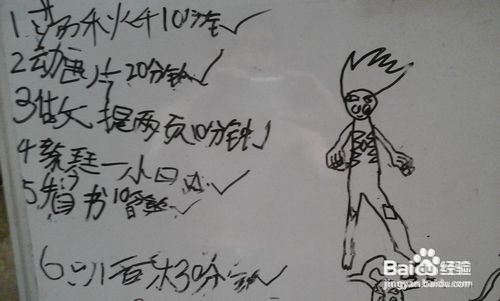 1 荡秋千10分钟✓
2动画片20分钟✓
3做文提两页10分钟✓
4练琴一小时✓
5看书10分钟✓
6 30分钟✓
Baidu经验
jingyan.baidu.com